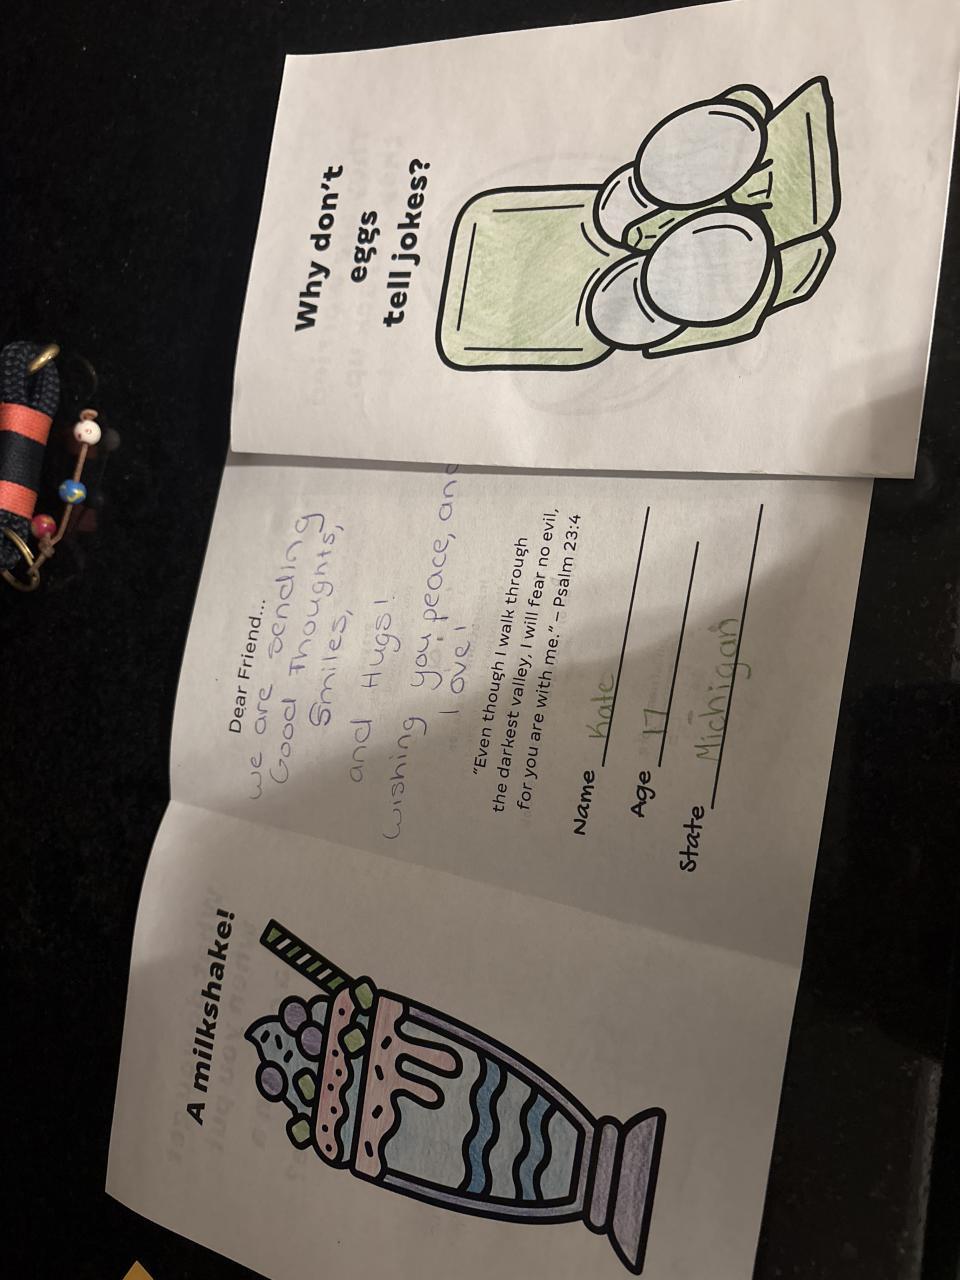 Why don't
eggs
tell jokes?
Dear Friend...
we are sending
Good Thoughts,
Smiles,
and Hugs!
wishing you peace, and
love!
"Even though I walk through
the darkest valley, I will fear no evil,
for you are with me." – Psalm 23:4
Name Kate
Age 17
State Michigan
A milkshake!